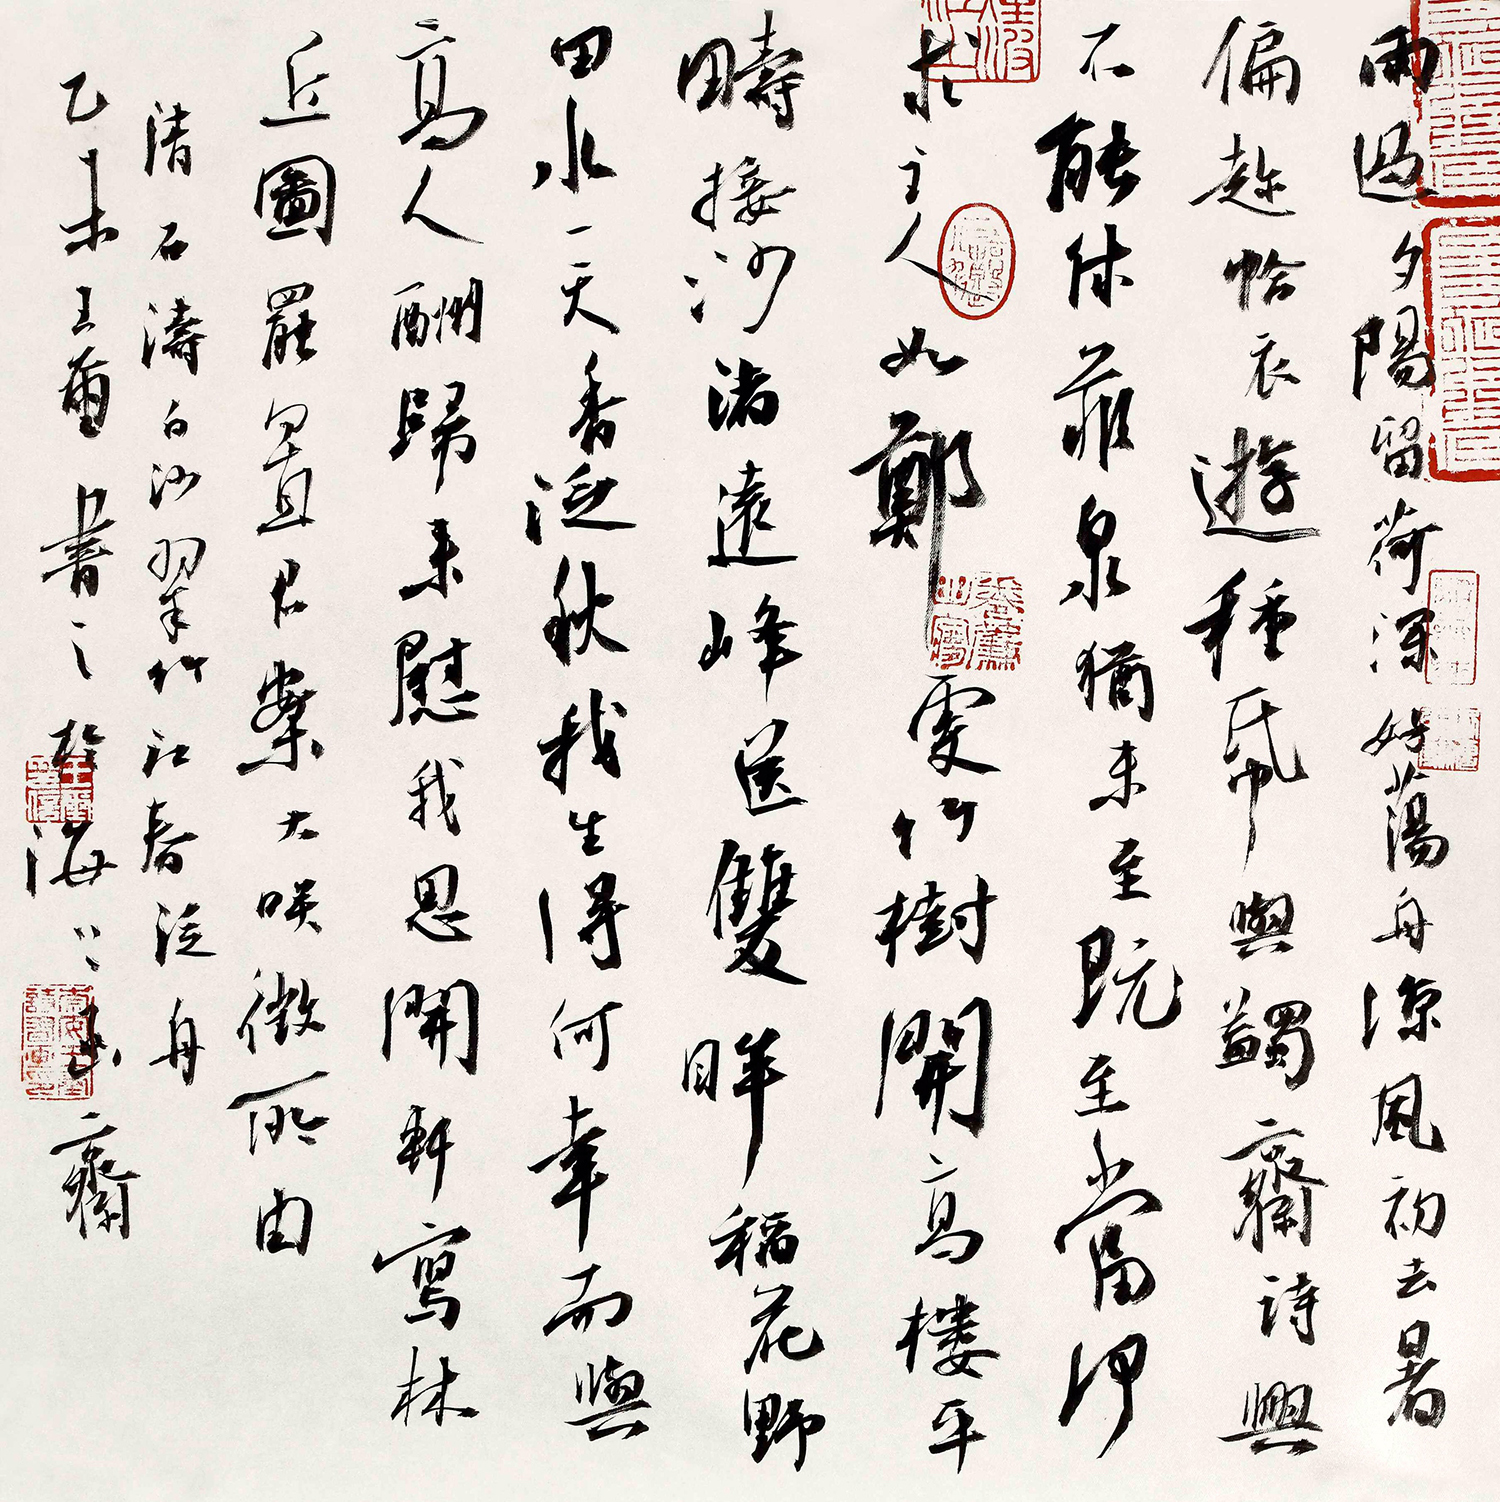 雨過夕陽留荷深好蕩舟涼風初去暑
偏趂恰衣遊種紙與蠲齋詩興
不能休菰泉猶未至既至當
求主人如鄭雯竹樹開高樓平
疇接沙渚遠峰送雙眸稻花野
田水一天香泛秋我生得何幸而與
高人酬歸來慰我思開軒寫林
丘圖罷置君案大咲徵所由
清石濤白沙翠竹江春泛舟
乙未王董書之於海上齋